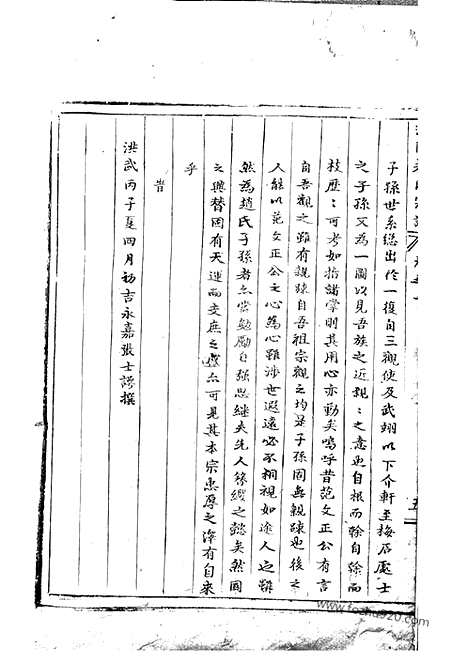 子孫世系總出於一復自三觀使及武翊以下介軒至梅居處士
之子孫又為一圖以見吾族之近親：之意也自根而幹自幹而
枝歷：可考如指諸掌則其用心亦勤矣嗚呼昔范文正公有言
自吾觀之雖有親疎自吾祖宗觀之均是子孫固無親疎也後之
人能以范文正公之心為心雖涉世遐遠必不相視如途人也雖
然為趙氏子孫者亦當勉勵自強思繼夫先人之懿矣然國
之興替固有天運而支庶之盛亦可見其本宗惠厚之澤有自來
乎
旹
洪武丙子夏四月初吉永嘉張士謗撰
www.fozhu920.com